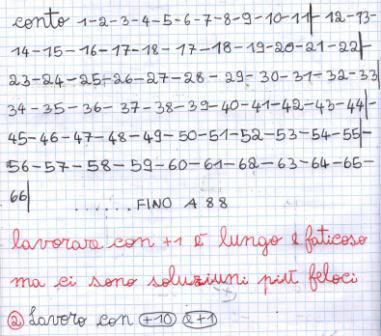 conto 1-2-3-4-5-6-7-8-9-10-11|-12-13-
14-15-16-17-18-17-18-19-20-21-22|-
23-24-25-26-27-28-29-30-31-32-33|
34-35-36-37-38-39-40-41-42-43-44|-
45-46-47-48-49-50-51-52-53-54-55|-
56-57-58-59-60-61-62-63-64-65-
66| ....... FINO A 88
lavorare con +1 è lungo e faticoso
ma ci sono soluziuni più feloci
② Lavoro con +10 e +1